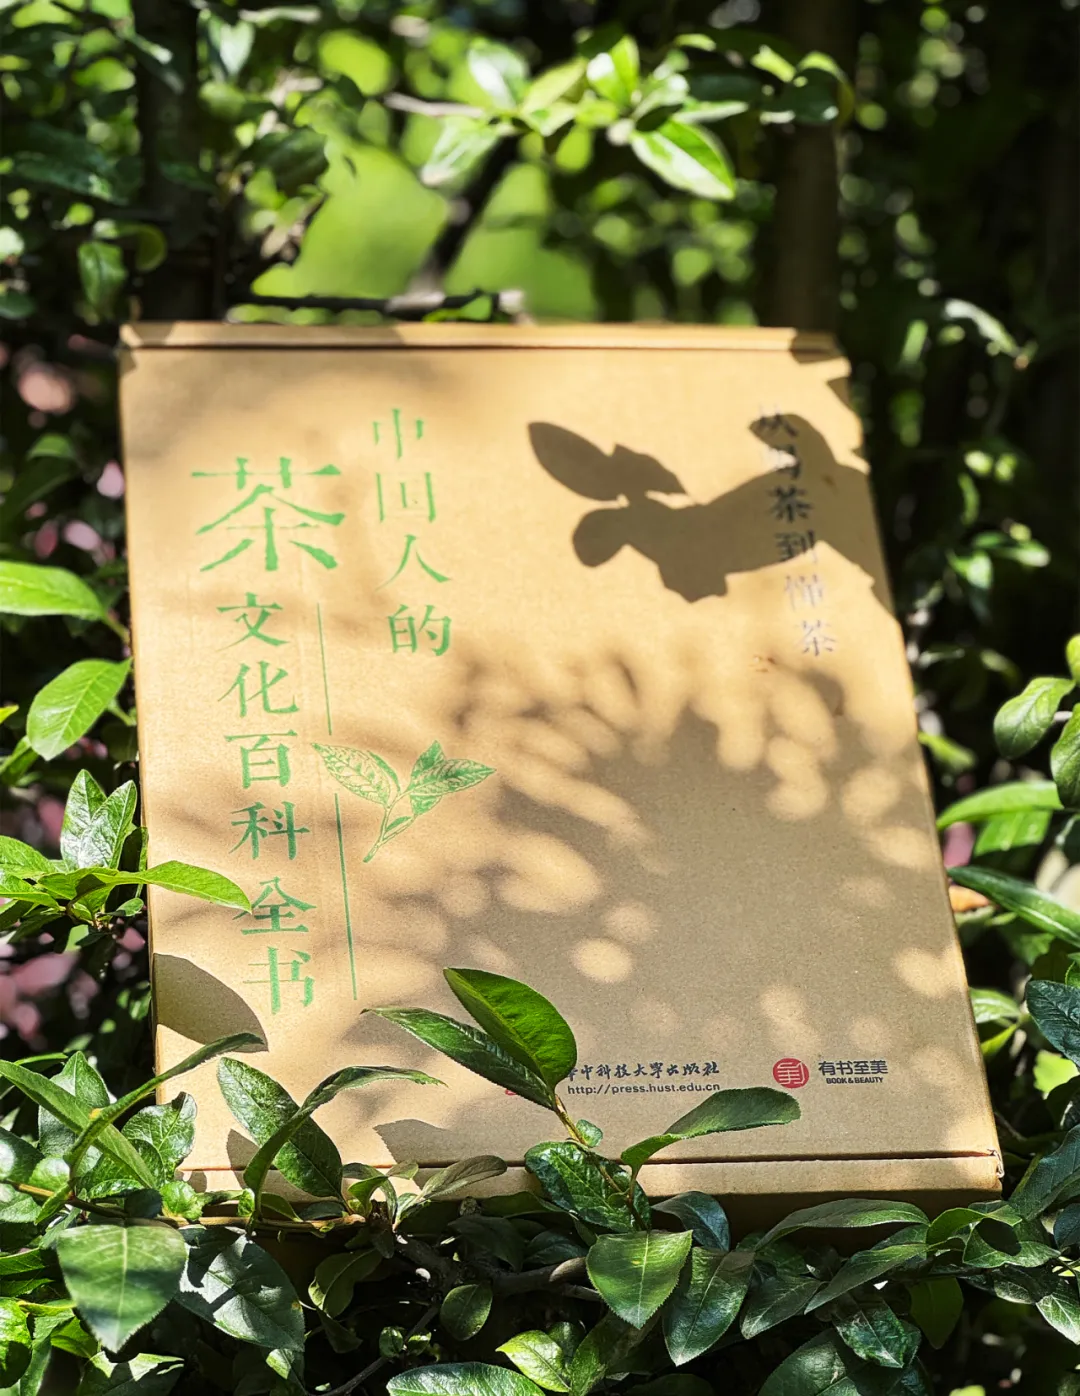 中国人的
茶文化百科全书
从喝茶到懂茶
华中科技大學出版社
http://press.hust.edu.cn
有书至美
BOOK & BEAUTY